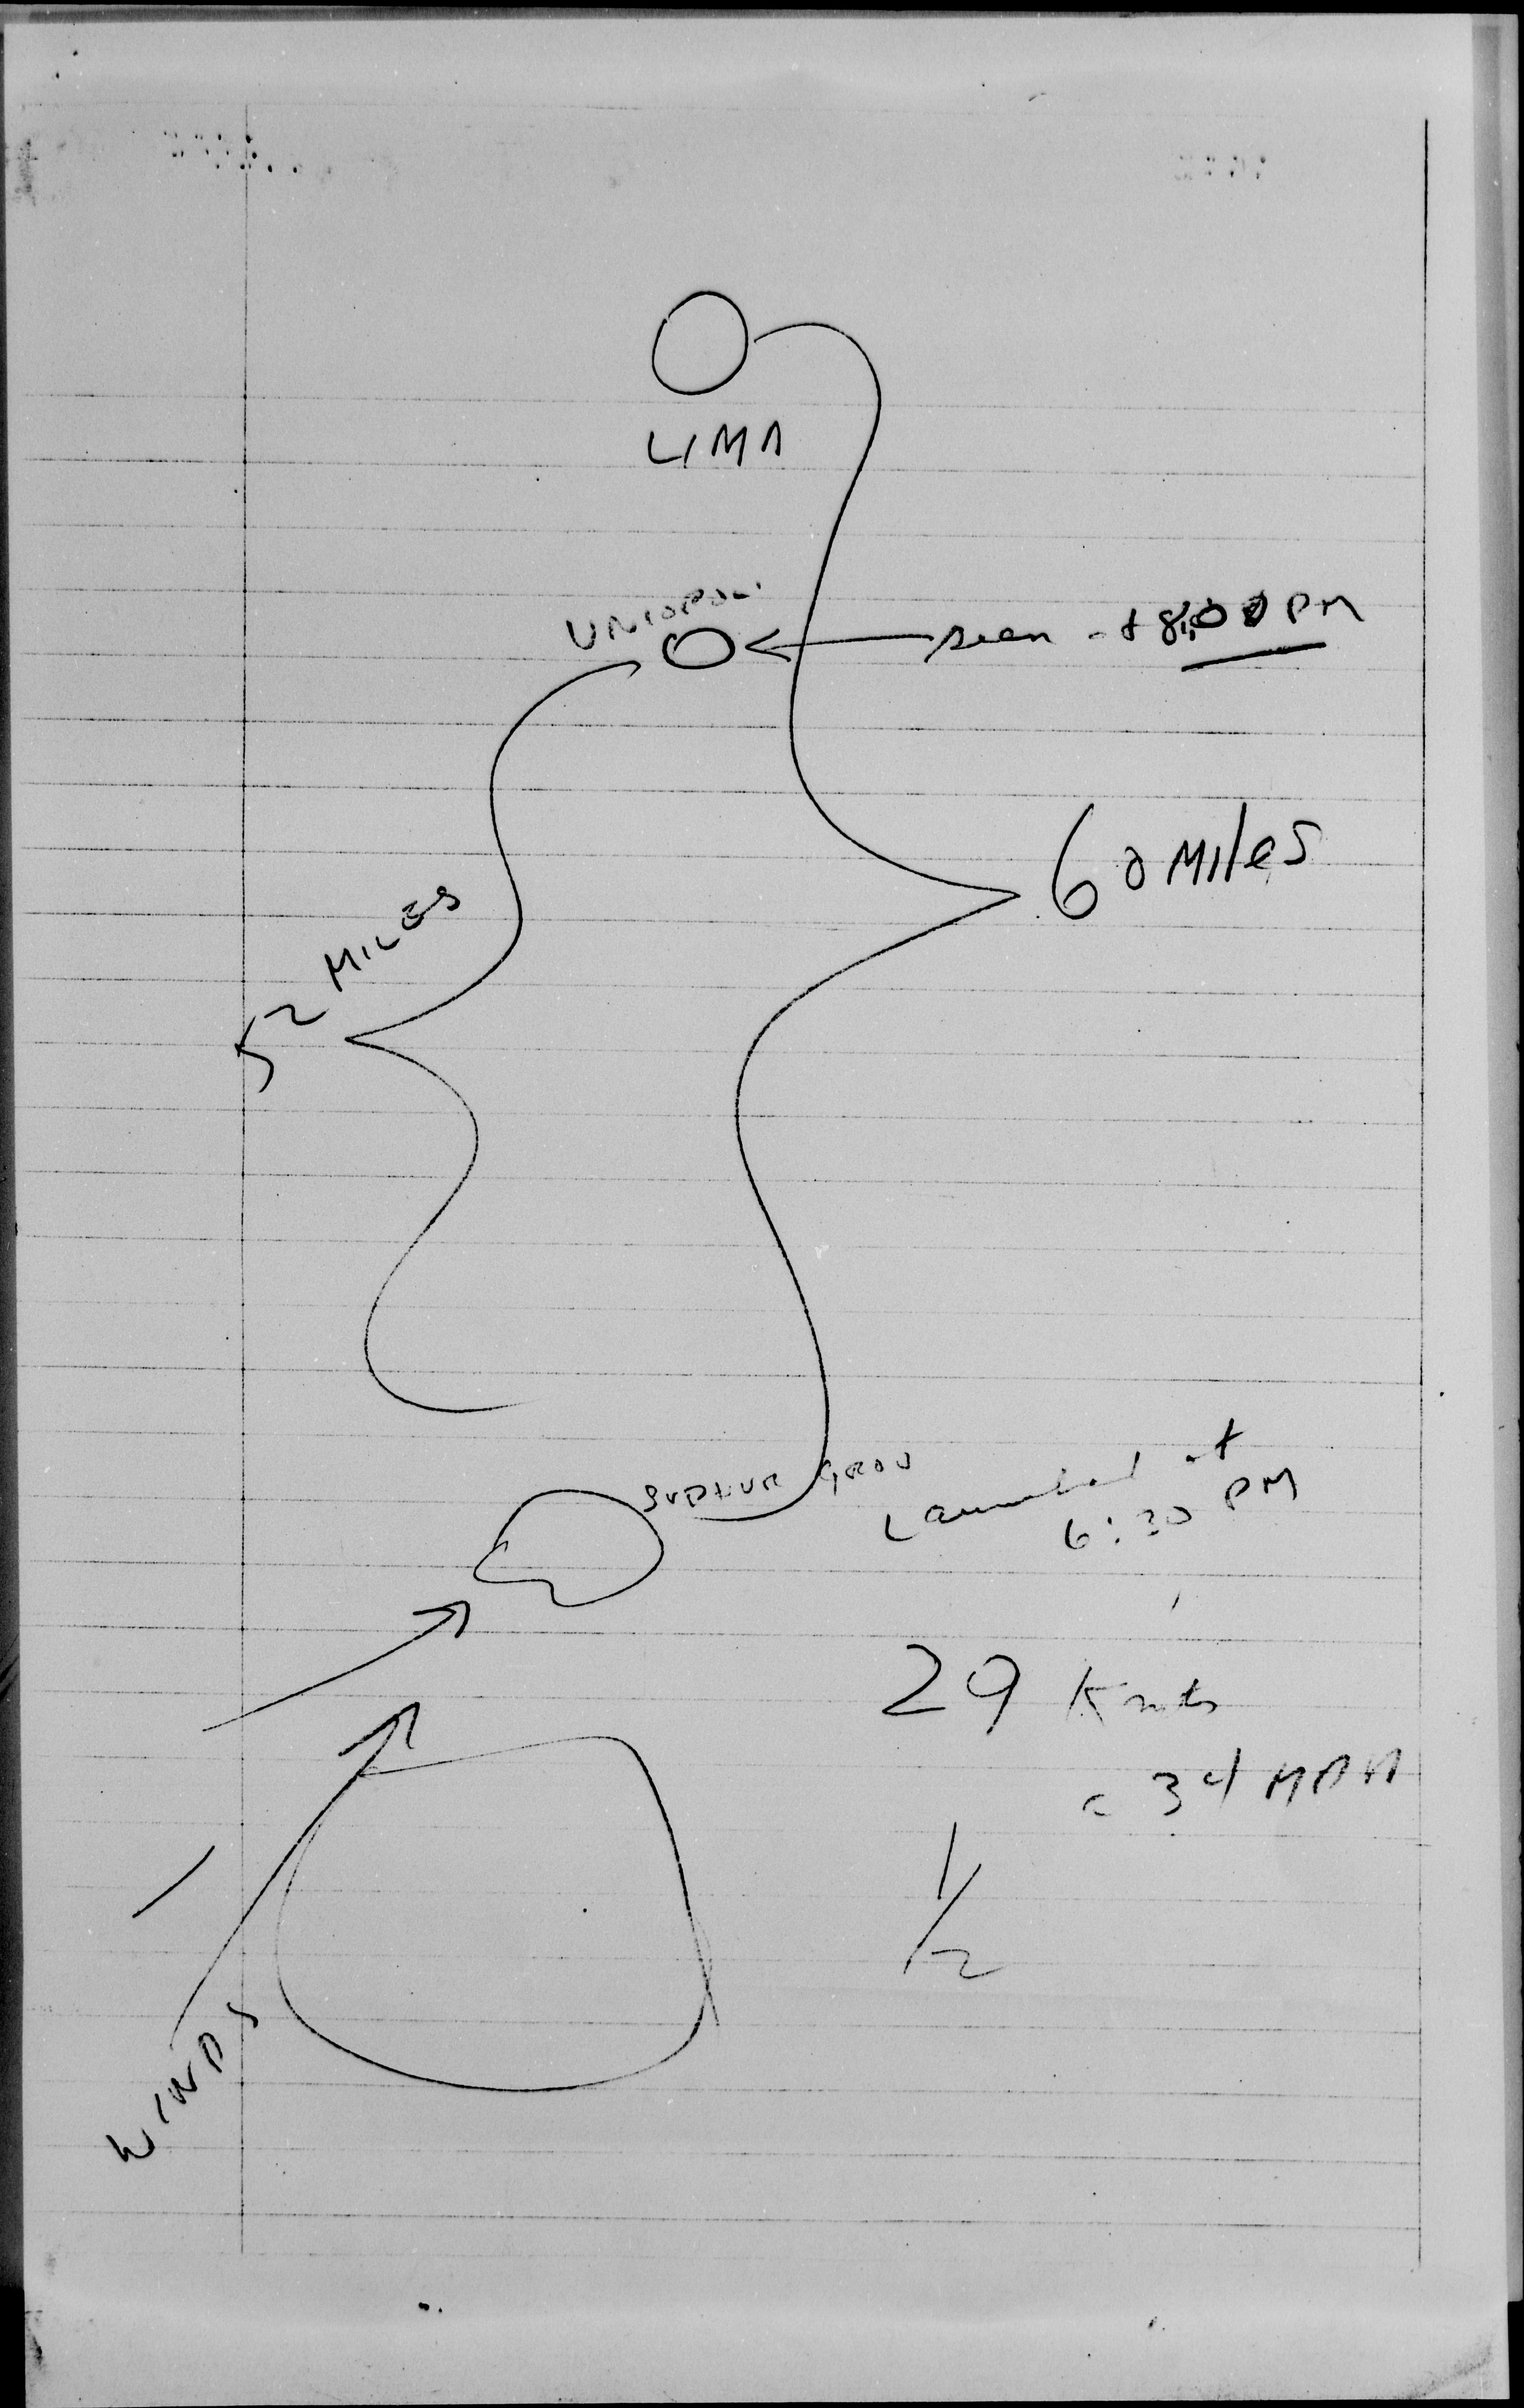 LIMA
UNIOPOL
seen at 8:00 PM
60 Miles
52 MILES
Launched at
6:30 PM
29 Knots
= 34 MPH
1/2
WINDS